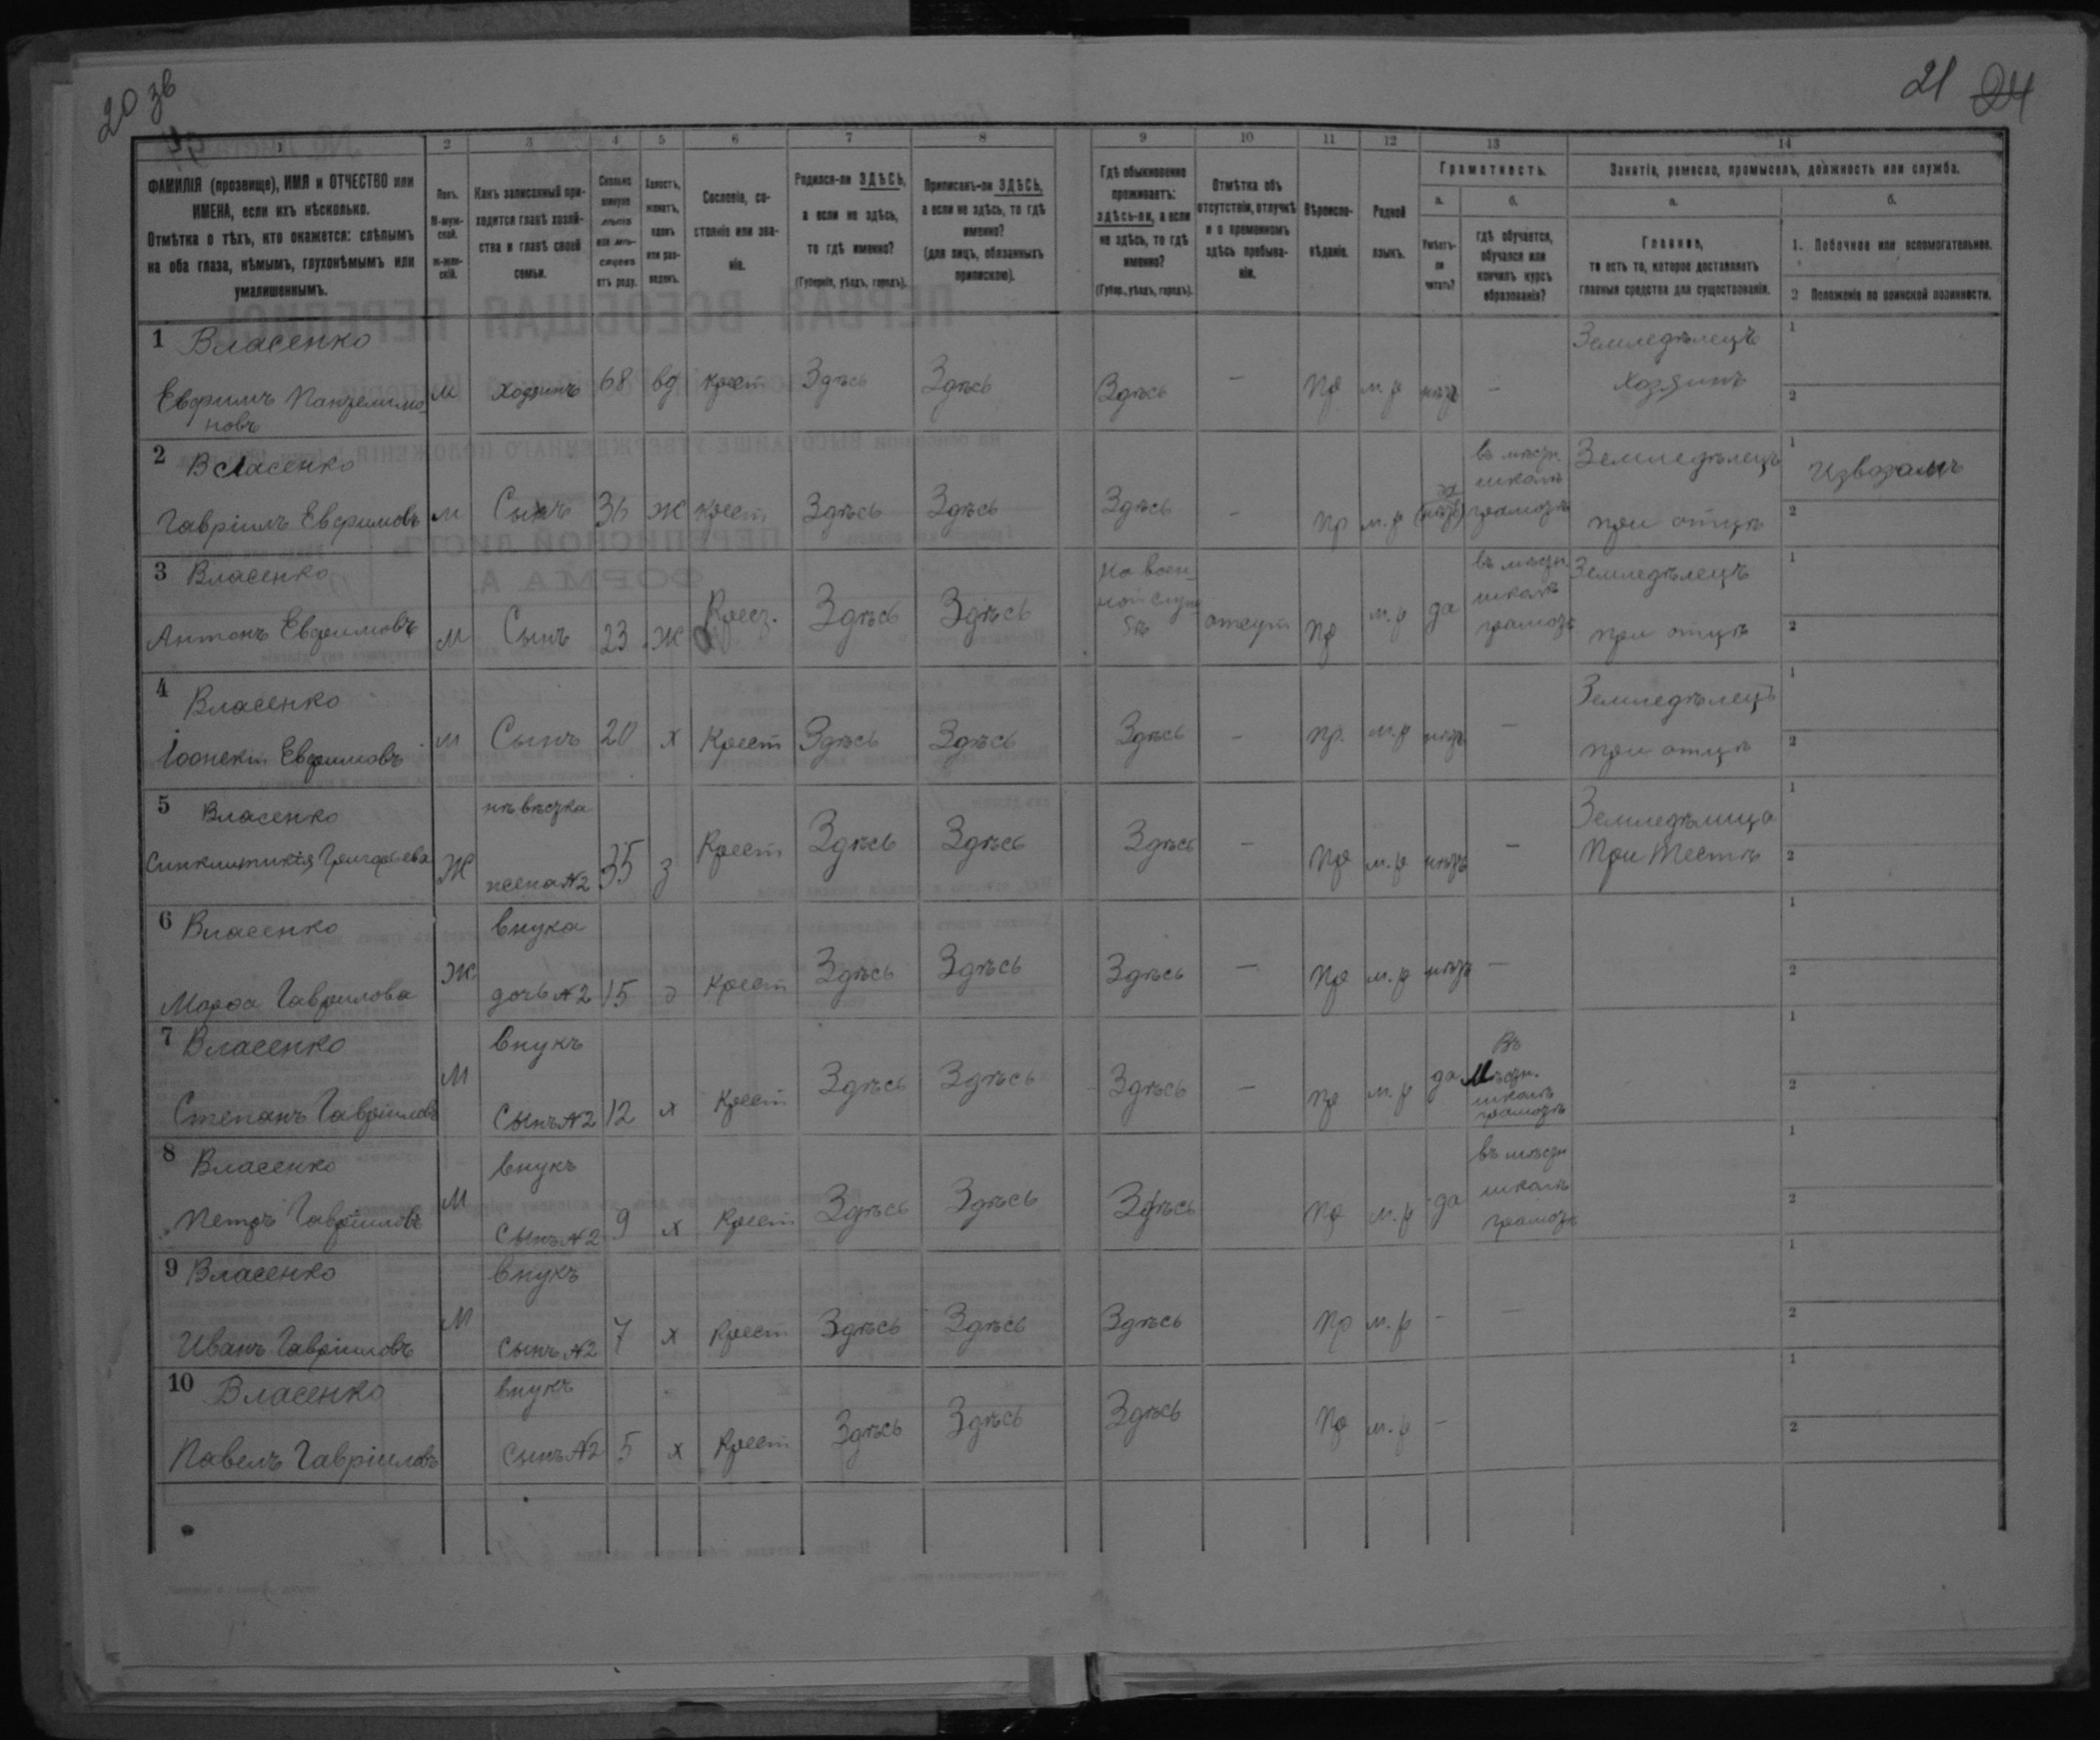 20 зв
21 24
1 2 3 4 5 6 7 8 9 10 11 12 13 14
ФАМИЛІЯ (прозвище), ИМЯ и ОТЧЕСТВО или ИМЕНА, если ихъ нѣсколько.
Отмѣтка о тѣхъ, кто окажется: слѣпымъ на оба глаза, нѣмымъ, глухонѣмымъ или умалишеннымъ.
Полъ.
М-муж-
ской.
ж-жен-
скій.
Какъ записанный при-
ходится главѣ хозяй-
ства и главѣ своей
семьи.
Сколько
минуло
лѣтъ
или мѣ-
сяцевъ
отъ роду.
Холостъ,
женатъ,
вдовъ
или раз-
веденъ.
Сословіе, со-
стояніе или зва-
ніе.
Родился-ли ЗДѢСЬ,
а если не здѣсь,
то гдѣ именно?
(Губернія, уѣздъ, городъ).
Приписанъ-ли ЗДѢСЬ,
а если не здѣсь, то гдѣ
именно?
(для лицъ, обязанныхъ
припискою).
Гдѣ обыкновенно
проживаетъ:
здѣсь-ли, а если
не здѣсь, то гдѣ
именно?
(Губер., уѣздъ, городъ).
Отмѣтка объ
отсутствіи, отлучкѣ
и о временномъ
здѣсь пребыва-
ніи.
Вѣроиспо-
вѣданіе.
Родной
языкъ.
Грамотность.
а.
Умѣетъ-
ли
читать?
б.
гдѣ обучается,
обучался или
кончилъ курсъ
образованія?
Занятіе, ремесло, промыселъ, должность или служба.
а.
Главное,
то есть то, которое доставляетъ
главныя средства для существованія.
б.
1. Побочное или вспомогательное.
2 Положеніе по воинской повинности.
1 Власенко
Евфимъ Пантелимо
новъ
м хозяинъ 68 вд крест Здѣсь Здѣсь Здѣсь — пр м.р нѣтъ —
Земледѣлецъ
хозяинъ
1
2
2 Власенко
Гавріилъ Евфимовъ м Сынъ 36 ж крест Здѣсь Здѣсь Здѣсь - пр м.р
въ мѣстн.
школѣ
грамотѣ
Земледѣлецъ
при отцѣ
1 Извозомъ
2
3 Власенко
Антонъ Евфимовъ м Сынъ 23 ж Крест. Здѣсь Здѣсь
На воен-
ной служ
бѣ
пр м.р да
въ мѣстн.
школѣ
грамотѣ
Земледѣлецъ
при отцѣ
1
2
4 Власенко
Евфимовъ м Сынъ 20 х Крест Здѣсь Здѣсь Здѣсь - пр. м.р нѣтъ —
Земледѣлецъ
при отцѣ
1
2
5 Власенко
Синклитикія Григорьева Ж
невѣстка
жена №2
35 з Крест Здѣсь Здѣсь Здѣсь — пр м.р нѣтъ —
Земледѣлица
При тестѣ
1
2
6 Власенко
Марфа Гаврилова Ж
внука
дочь №2
15 д Крест Здѣсь Здѣсь Здѣсь — пр м.р нѣтъ —
1
2
7 Власенко
Степанъ Гавріиловъ М
внукъ
Сынъ №2
12 х Крест Здѣсь Здѣсь Здѣсь — пр м.р да
Въ
Мѣстн.
школѣ
грамотѣ
1
2
8 Власенко
Петръ Гавріиловъ М
внукъ
Сынъ №2
9 х Крест Здѣсь Здѣсь Здѣсь пр м.р да
въ мѣстн
школѣ
грамотѣ
1
2
9 Власенко
Иванъ Гавріиловъ М
внукъ
Сынъ №2
7 х Крест Здѣсь Здѣсь Здѣсь пр м.р - —
1
2
10 Власенко
Павелъ Гавріиловъ
внукъ
Сынъ №2
5 х Крест Здѣсь Здѣсь Здѣсь пр м.р -
1
2